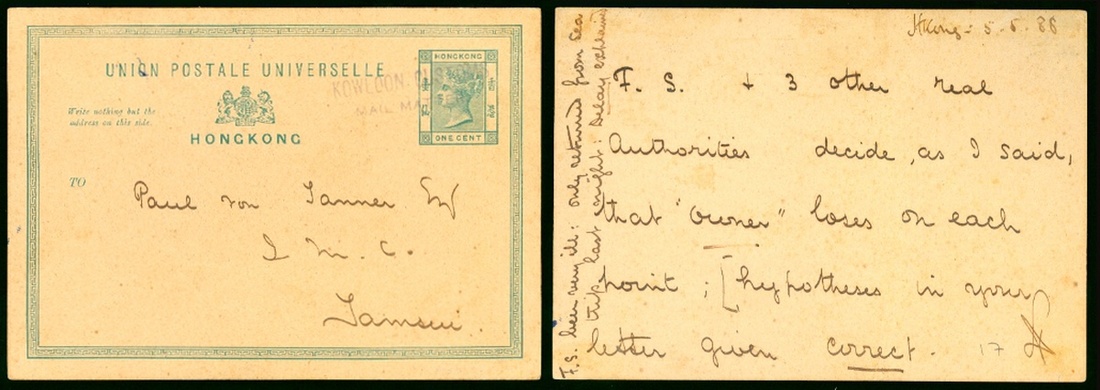 UNION POSTALE UNIVERSELLE
KOWLOON
MAIL MAT
HONGKONG
ONE CENT
Write nothing but the
address on this side.
HONGKONG
TO
Paul von Tanner Esq
I. M. C.
Tamsui.
HKong - 5-6.88
F. S. + 3 other real
Authorities decide, as I said,
that "owner" loses on each
point; [hypotheses in your
letter given correct. 17
F.S. been very ill: only returned from sea
trip last night: Delay explained